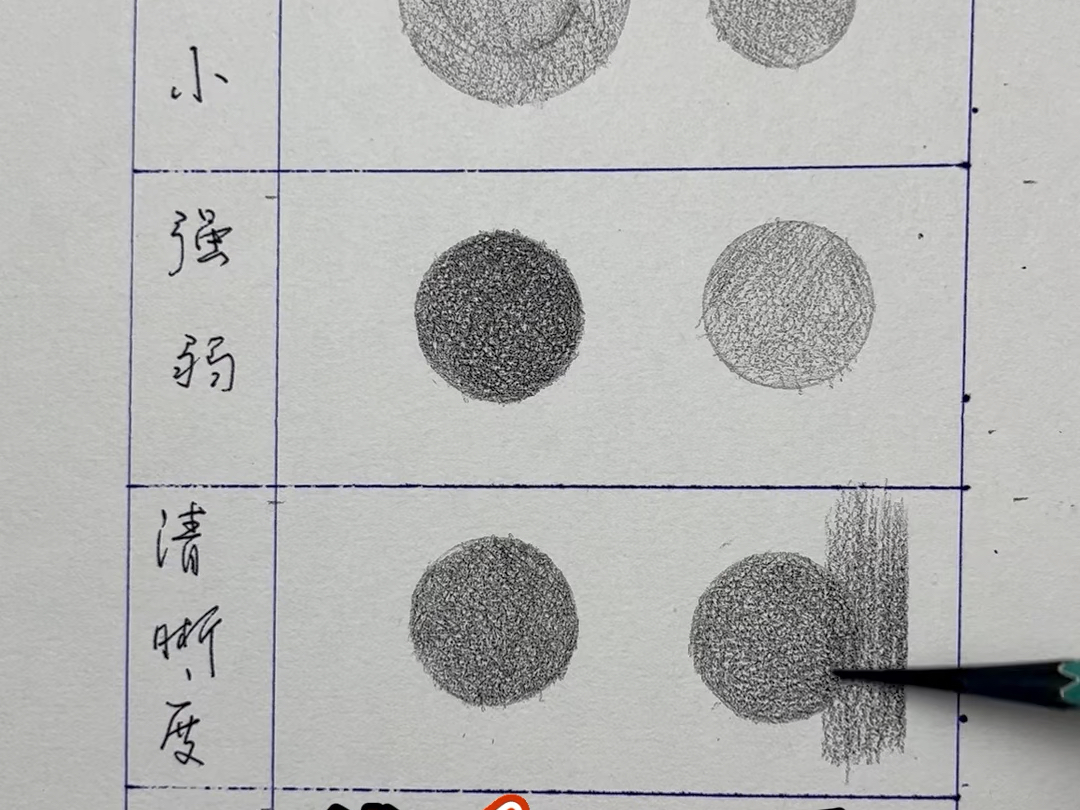 小
强
弱
清
晰
度